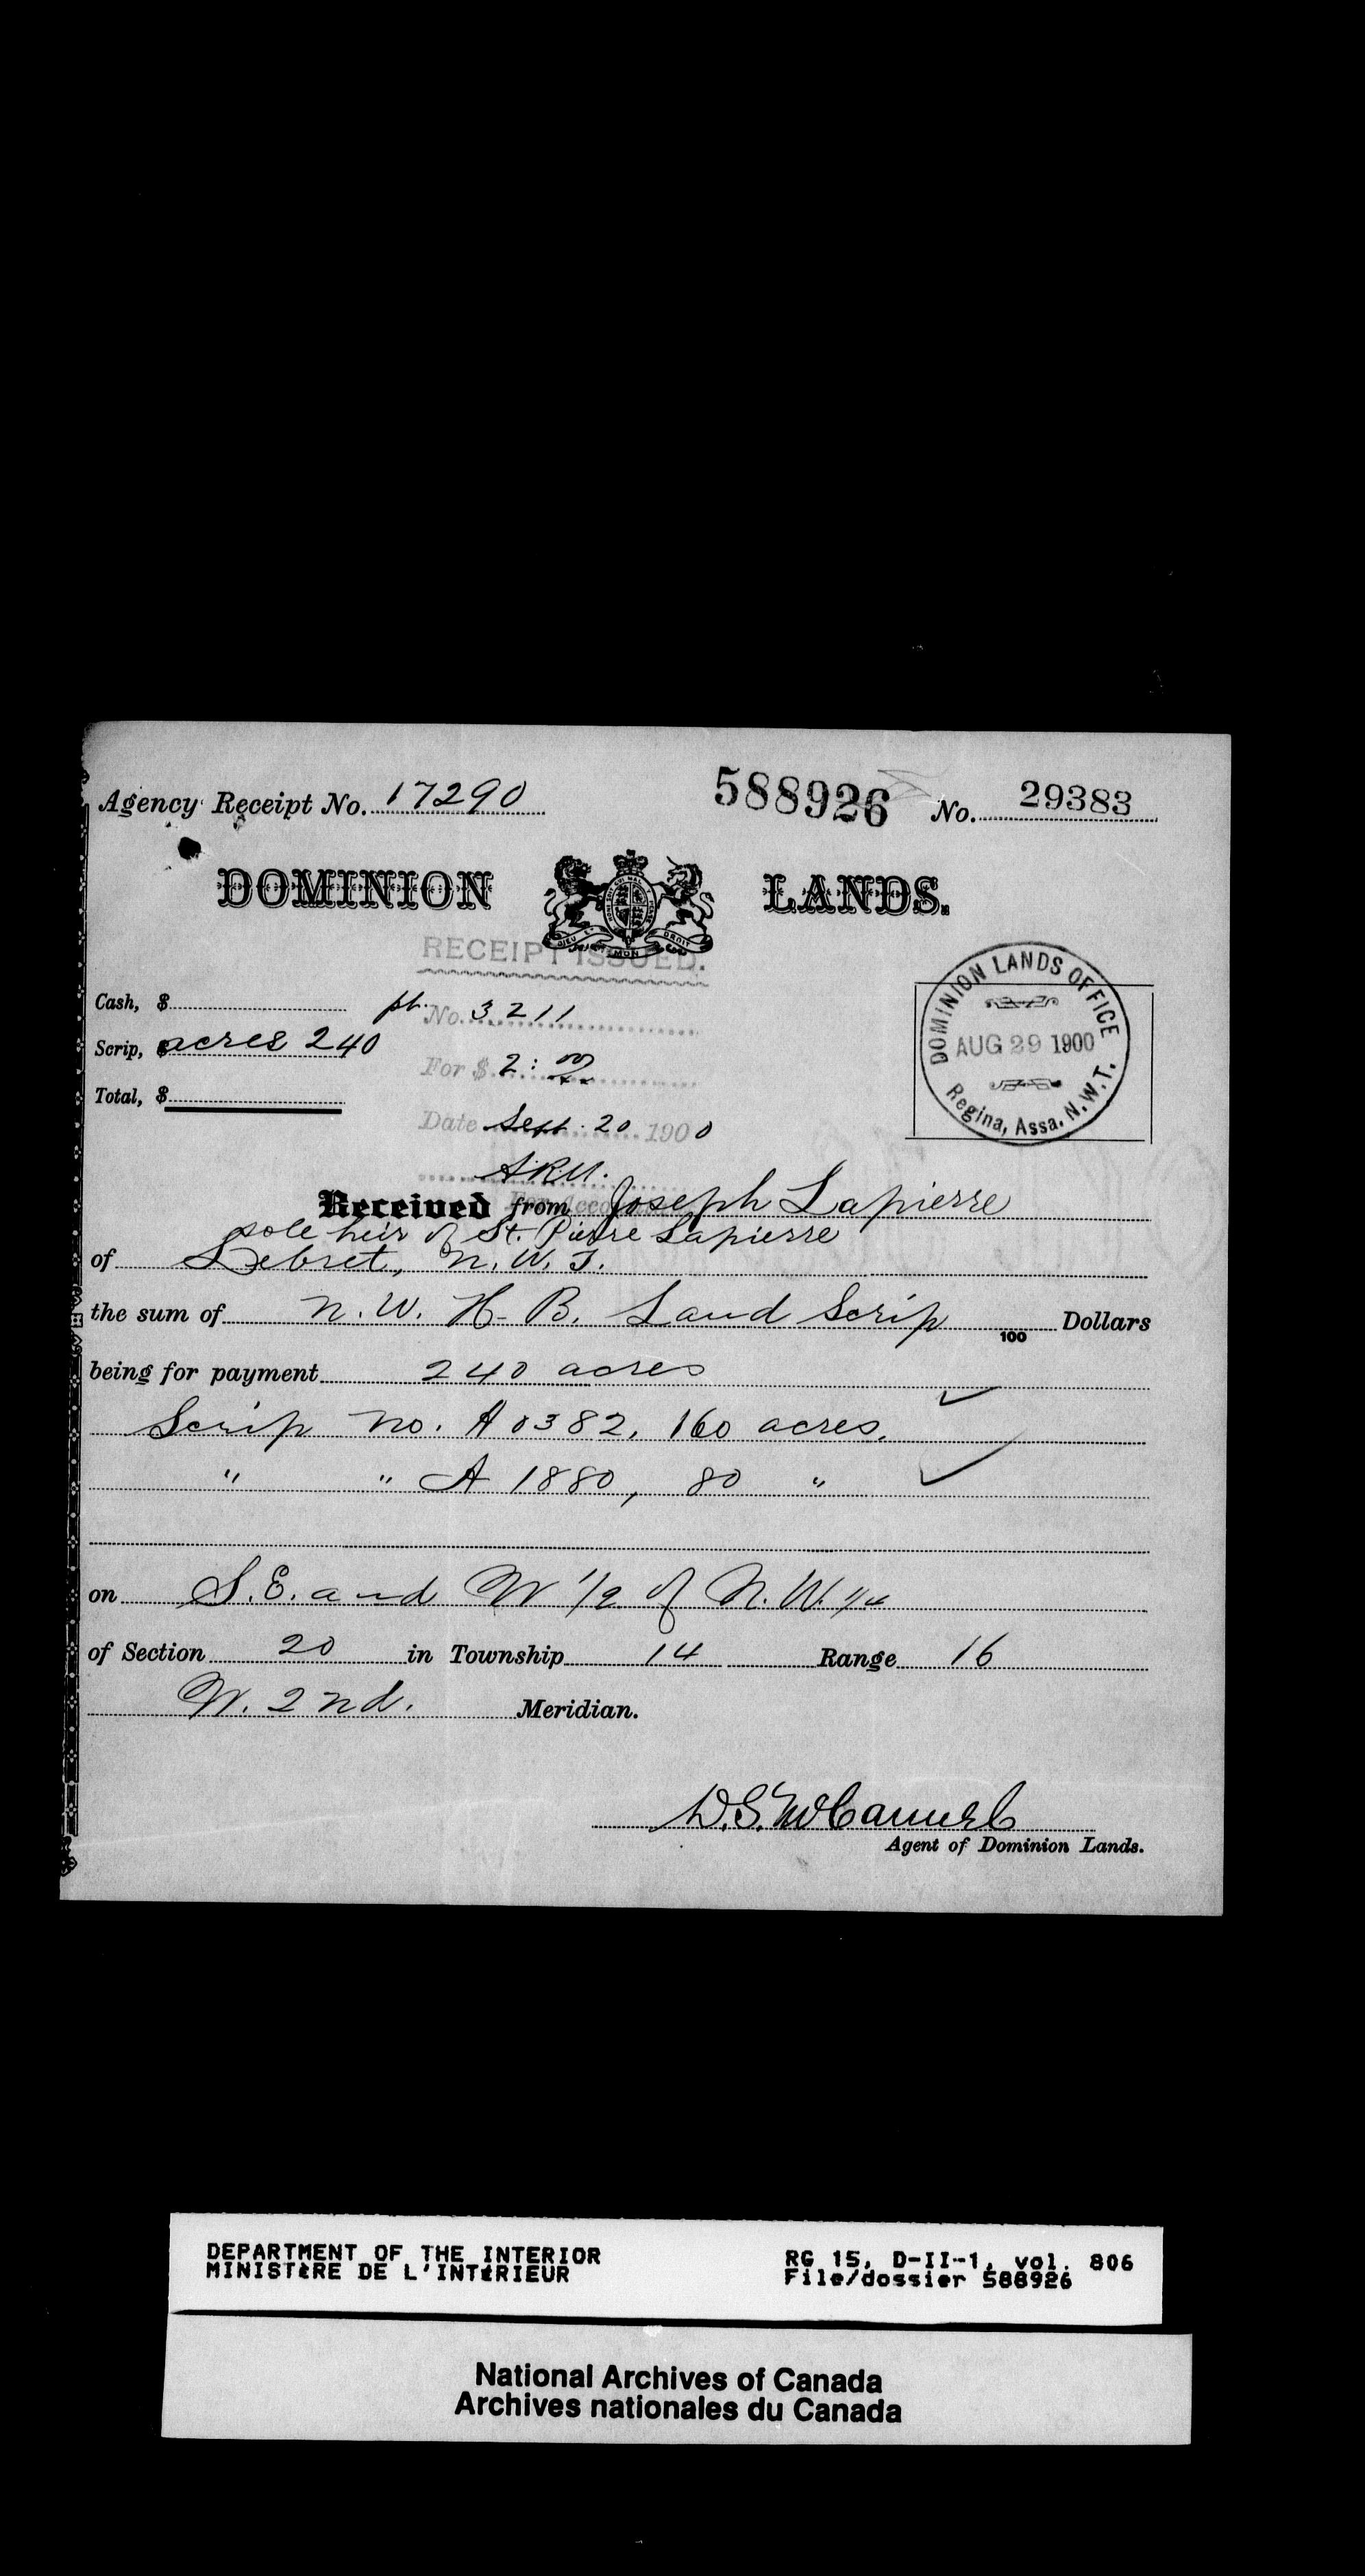 Agency Receipt No. 17290
588926
No. 29383
DOMINION LANDS.
DIEU ET MON DROIT
RECEIPT ISSUED.
Cash, $
pt. No. 3211
Scrip, $ acres 240
For $ 2:00
Total, $
Date Sept. 20 1900
A.R.M.
DOMINION LANDS OFFICE
AUG 29 1900
Regina, Assa. N.W.T.
Received from Joseph Lapierre
sole heir of St. Pierre Lapierre
of Lebret, N.W.T.
the sum of N.W. H-B. Land Scrip 100 Dollars
being for payment 240 acres
Scrip No. A 0382, 160 acres.
" " A 1880, 80 "
on S.E. and W 1/2 of N.W. 1/4
of Section 20 in Township 14 Range 16
W. 2nd. Meridian.
Agent of Dominion Lands.
DEPARTMENT OF THE INTERIOR
MINISTÈRE DE L'INTÉRIEUR
RG 15, D-II-1, vol. 806
File/dossier 588926
National Archives of Canada
Archives nationales du Canada